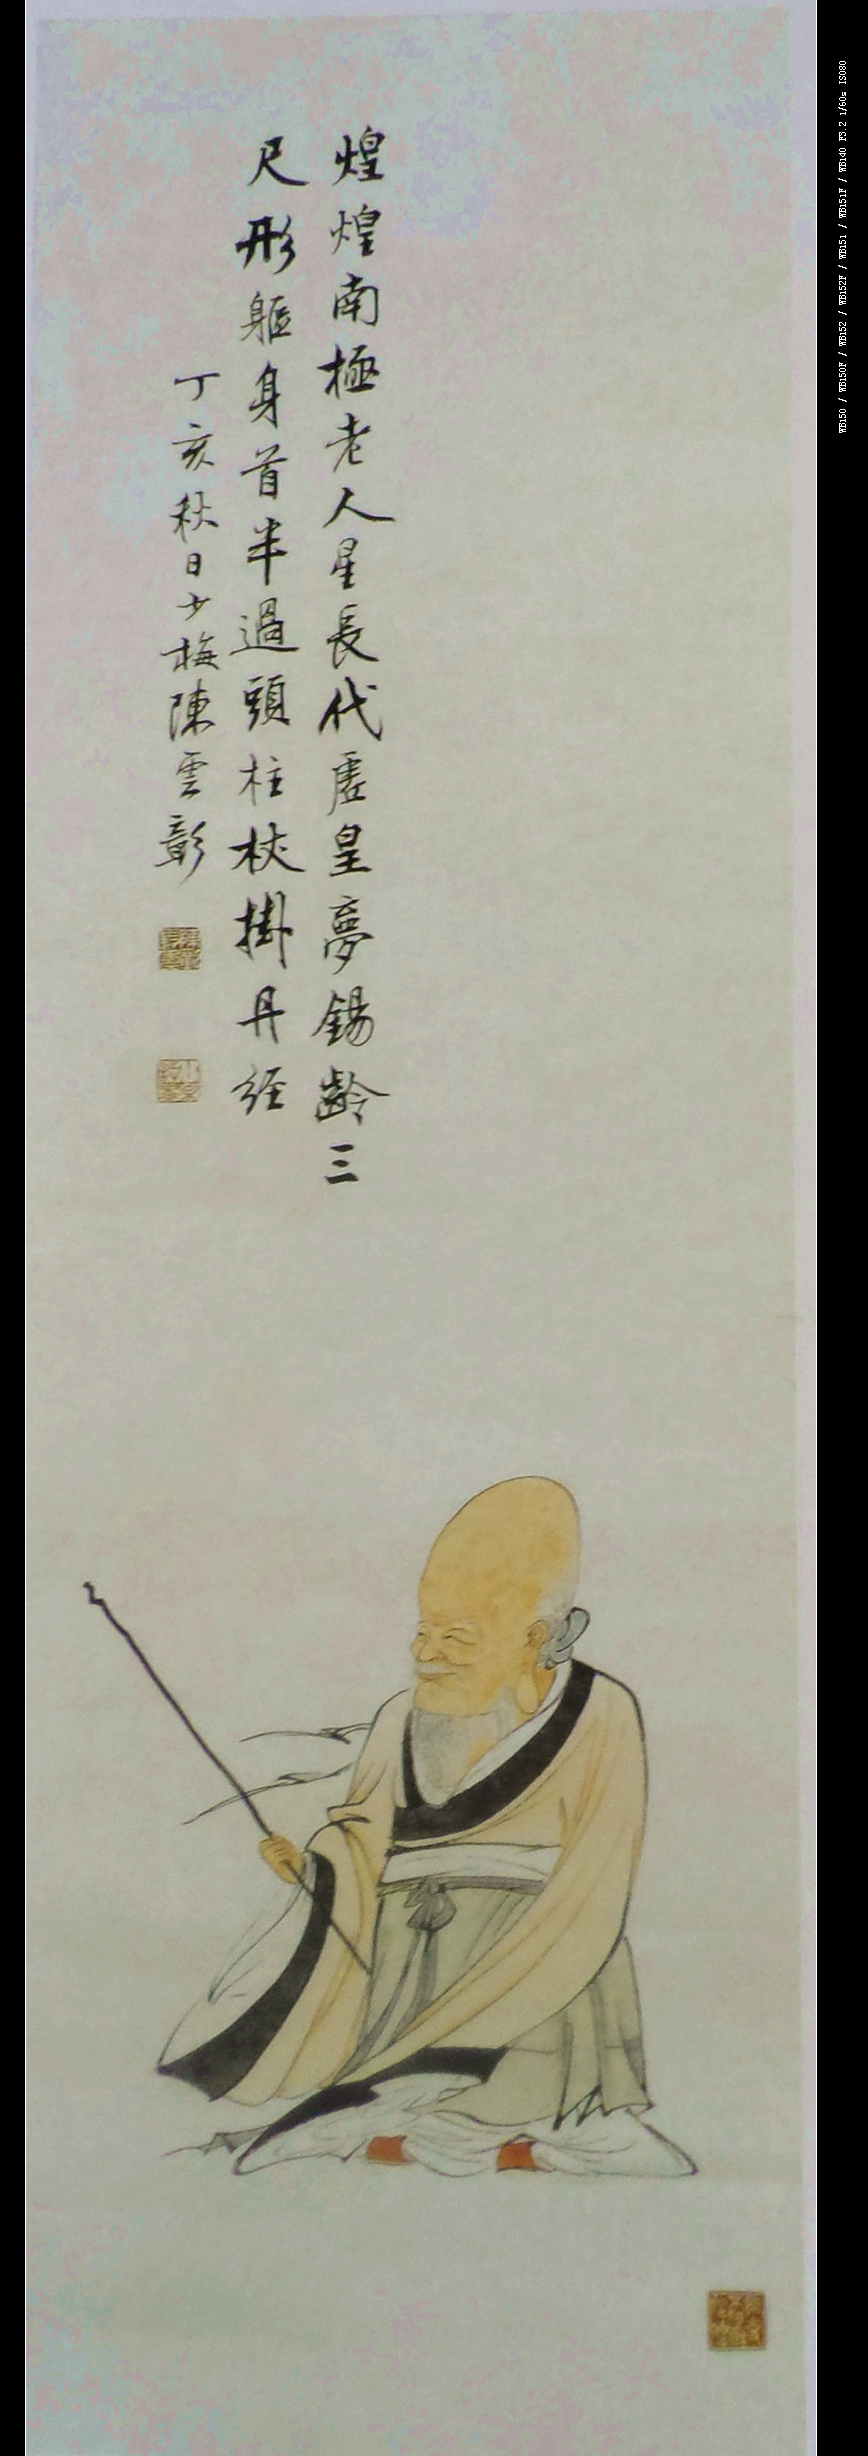 煌煌南極老人星長代虛皇夢錫齡三
尺形軀身首半過頭柱杖掛丹經
丁亥秋日少梅陳雲彰
WB150 / WB150F / WB152 / WB152F / WB151 / WB151F / WB140 F3.2 1/60s ISO80